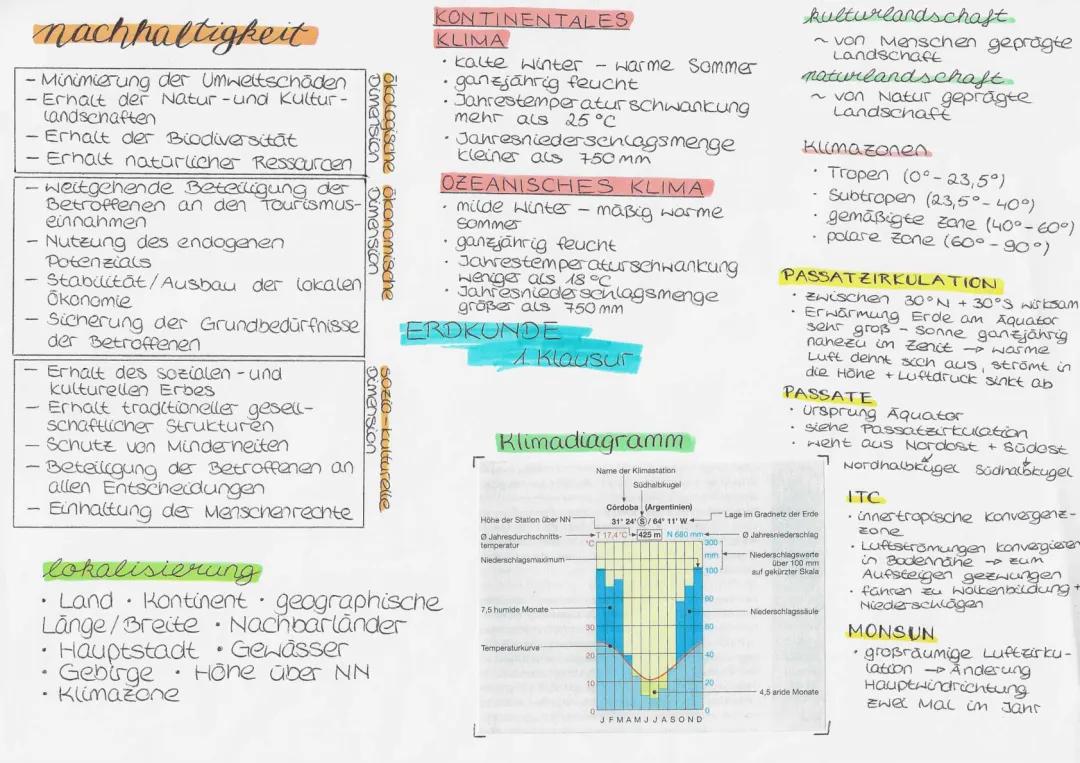 nachhaltigkeit
- Minimierung der Umweltschäden
- Erhalt der Natur- und Kultur-
landschaften
- Erhalt der Biodiversität
- Erhalt natürlicher Ressourcen
ökologische
Dimension
- weitgehende Beteiligung der
Betroffenen an den Tourismus-
einnahmen
- Nutzung des endogenen
Potenzials
- Stabilität/Ausbau der lokalen
Ökonomie
- Sicherung der Grundbedürfnisse
der Betroffenen
ökonomische
Dimension
- Erhalt des sozialen - und
kulturellen Erbes
- Erhalt traditioneller gesell-
schaftlicher Strukturen
- Schutz von Minderheiten
- Beteiligung der Betroffenen an
allen Entscheidungen
- Einhaltung der Menschenrechte
sozio-kulturelle
Dimension
lokalisierung
· Land · Kontinent · geographische
Länge/Breite · Nachbarländer
· Hauptstadt · Gewässer
· Gebirge · Höhe über NN
· Klimazone
KONTINENTALES
KLIMA
· kalte Winter - warme Sommer
· ganzjährig feucht
· Jahrestemperaturschwankung
mehr als 25°C
· Jahresniederschlagsmenge
kleiner als 750mm
OZEANISCHES KLIMA
· milde Winter - mäßig warme
Sommer
· ganzjährig feucht
· Jahrestemperaturschwankung
weniger als 18°C
· Jahresniederschlagsmenge
größer als 750mm
ERDKUNDE
1. Klausur
Klimadiagramm
Name der Klimastation
Südhalbkugel
Córdoba (Argentinien)
Höhe der Station über NN
31° 24' S / 64° 11' W
Lage im Gradnetz der Erde
Ø Jahresdurchschnitts-
temperatur
T 17,4°C
425 m
N 680 mm
Ø Jahresniederschlag
°C
300
mm
100
Niederschlagsmaximum
Niederschlagswerte
über 100 mm
auf gekürzter Skala
80
7,5 humide Monate
Niederschlagssäule
30
60
Temperaturkurve
20
40
10
20
4,5 aride Monate
0
0
J F M A M J J A S O N D
kulturlandschaft
~ von Menschen geprägte
Landschaft
naturlandschaft
~ von Natur geprägte
Landschaft
Klimazonen
· Tropen (0°-23,5°)
· Subtropen (23,5°-40°)
· gemäßigte Zone (40°-60°)
· polare Zone (60°-90°)
PASSATZIRKULATION
· zwischen 30°N + 30°S wirksam
· Erwärmung Erde am Äquator
sehr groß - Sonne ganzjährig
nahezu im Zenit → warme
Luft dehnt sich aus, strömt in
die Höhe + Luftdruck sinkt ab
PASSATE
· Ursprung Äquator
· siehe Passatzirkulation
· weht aus Nordost + Südost
Nordhalbkugel Südhalbkugel
ITC
· innertropische Konvergenz-
zone
· Luftströmungen konvergieren
in Bodennähe → zum
Aufsteigen gezwungen
· führen zu Wolkenbildung +
Niederschlägen
MONSUN
· großräumige Luftzirku-
lation → Änderung
Hauptwindrichtung
zwei Mal im Jahr